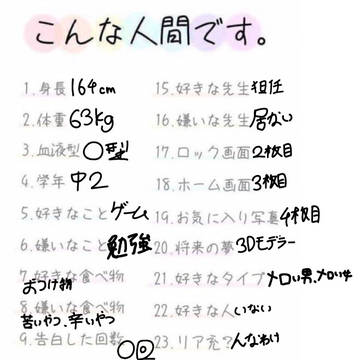 こんな人間です。
1.身長 164cm
2.体重 63kg
3.血液型 〇型
4.学年 中2
5.好きなこと ゲーム
6.嫌いなこと 勉強
7.好きな食べ物
おつけ物
8.嫌いな食べ物
苦いやつ、辛いやつ
9.告白した回数
〇回
15.好きな先生 担任
16.嫌いな先生 居ない
17.ロック画面 2枚目
18.ホーム画面 3枚目
19.お気に入り写真 4枚目
20.将来の夢 3Dモデラー
21.好きなタイプ メロい男、メロい女
22.好きな人 いない
23.リア充? んなわけ